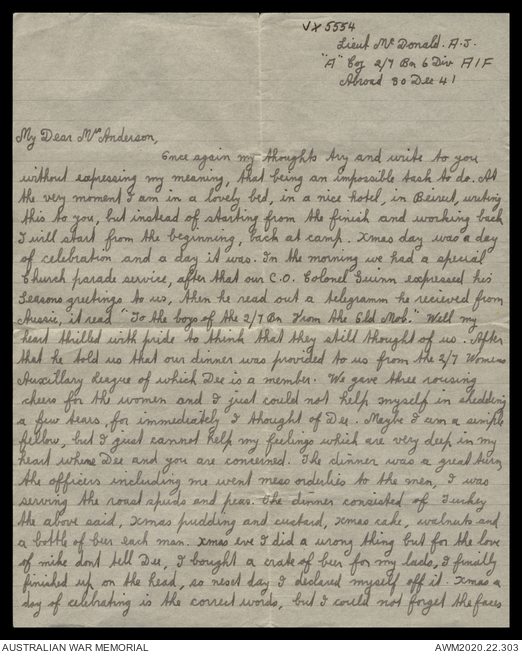 VX5554
Lieut McDonald. A.J.
"A" Coy 2/7 Bn 6 Div AIF
Abroad 30 Dec 41
My Dear Mrs Anderson,
Once again my thoughts try and write to you
without expressing my meaning, that being an impossible task to do. At
the very moment I am in a lovely bed, in a nice hotel, in Beirut, writing
this to you, but instead of starting from the finish and working back
I will start from the beginning, back at camp. Xmas day was a day
of celebration and a day it was. In the morning we had a special
Church parade service, after that our C.O. Colonel Guinn expressed his
Seasons greetings to us, then he read out a telegramm he recieved from
Aussie, it read "To the boys of the 2/7 Bn From the Old Mob." Well my
heart thrilled with pride to think that they still thought of us. After
that he told us that our dinner was provided to us from the 2/7 Womens
Auxillary league of which Dee is a member. We gave three rousing
cheers for the women and I just could not help myself in shedding
a few tears, for immediately I thought of Dee. Maybe I am a simple
fellow, but I just cannot help my feelings which are very deep in my
heart where Dee and you are concerned. The dinner was a great turn
the officers including me went mess orderlies to the men, I was
serving the roast spuds and peas. The dinner consisted of Turkey
the above said, Xmas pudding and custard, Xmas cake, walnuts and
a bottle of beer each man. Xmas eve I did a wrong thing but for the love
of mike dont tell Dee, I bought a crate of beer for my lads, I finally
finished up on the head, so next day I declared myself off it. Xmas a
day of celebrating is the correct words, but I could not forget the faces
AUSTRALIAN WAR MEMORIAL
AWM2020.22.303